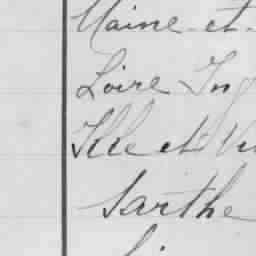 Maine-et-
Loire In
Ille et Vi
Sarthe